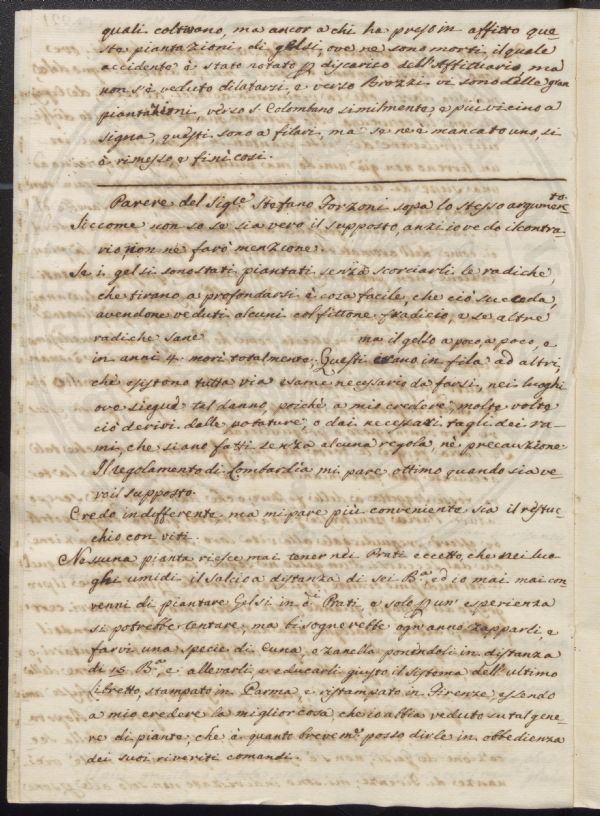 quali coltivano, ma ancor a chi ha preso in affitto que-
ste piantazioni di gelsi, ove ne sono morti, il quale
accidente è stato notato p discarico dell'Affittuario, ma
non s'è veduto dilatarsi, e verso Brozzi vi sono delle gran
piantazioni, verso S. Colombano similmente, e più vicino a
Signa, questi sono a filari, ma se ne è mancato uno, si
è rimesso, e finì così.
Parere del Sig.re Stefano Forzoni sopa lo stesso argumen.to
Siccome non so se sia vero il supposto, anzi io vedo il contra-
rio, non ne farò menzione.
Se i gelsi sono stati piantati senza scorciarli le radiche,
che tirano a profondarsi è cosa facile, che ciò succeda,
avendone veduti alcuni col fittone fradicio, e se altre
radiche sane ma il gelso a poco a poco, e
in anni 4. morì totalmente. Questi erano in fila ad altri,
che esistono tutta via esame necessario da farsi, nei luoghi
ove siegue tal danno, poichè a mio credere, molte volte
ciò derivi dalle potature, o dai necessarj tagli dei ra-
mi, che siano fatti senza alcuna regola nè precauzione.
Il regolamento di Lombardia mi pare ottimo quando sia ve-
ro il supposto.
Credo indifferente, ma mi pare più conveniente sia il restuc-
chio con viti.
Nessuna pianta riesce mai tener nei Prati eccetto, che nei luo-
ghi umidi il salcio a distanza di sei B.a, ed io mai mai con-
venni di piantare Gelsi in d.i Prati, e solo p un' esperienza
si potrebbe tentare, ma bisognerebbe ogn' anno zapparli, e
farvi una specie di Cuna, o zanella ponendoli in distanza
di 15 B.a, e allevarli, e educarli giusto il sistema dell' ultimo
libretto, stampato in Parma, e ristampato in Firenze, essendo
a mio credere la miglior cosa, che io abbia veduto su tal gene-
re di piante, che è quanto brevem.e posso dirle in obbedienza
dei suoi riveriti comandi.